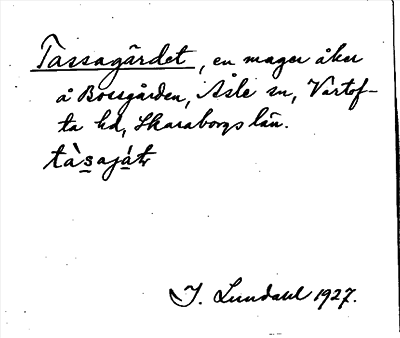 Tassagärdet, en mager åker
å Bossgården, Åsle sn, Vartof-
ta hd, Skaraborgs län.
tàsajátɩ
I. Lundahl 1927.